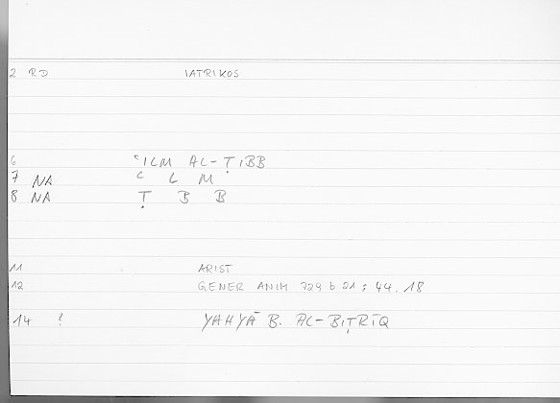 2 RD IATRIKOS
6 ʿILM AL-ṬIBB
7 NA ʿ L M
8 NA Ṭ B B
11 ARIST
12 GENER ANIM 729 b 21 ; 44.18
14 ? YAHYĀ B. AL-BIṬRĪQ